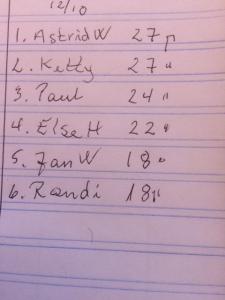 12/10
1. Astrid W 27 p
2. Ketty 27 "
3. Paul 24 "
4. Else H 22 "
5. Jan W 18 "
6. Randi 18 p